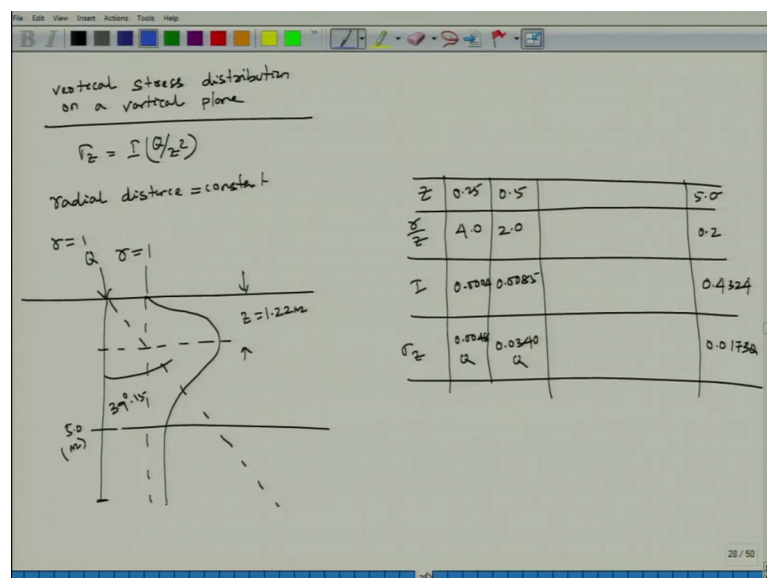 File Edit View Insert Actions Tools Help
B I
vertecal stress distribution
on a vartical plane
σz = I (Q/z²)
radial distance = constant
r=1
Q r=1
z=1.22m
39°.15
5.0
(m)
z 0.25 0.5 5.0
r/z 4.0 2.0 0.2
I 0.0085 0.4324
σz 0.0340 Q 0.0173Q
28 / 50